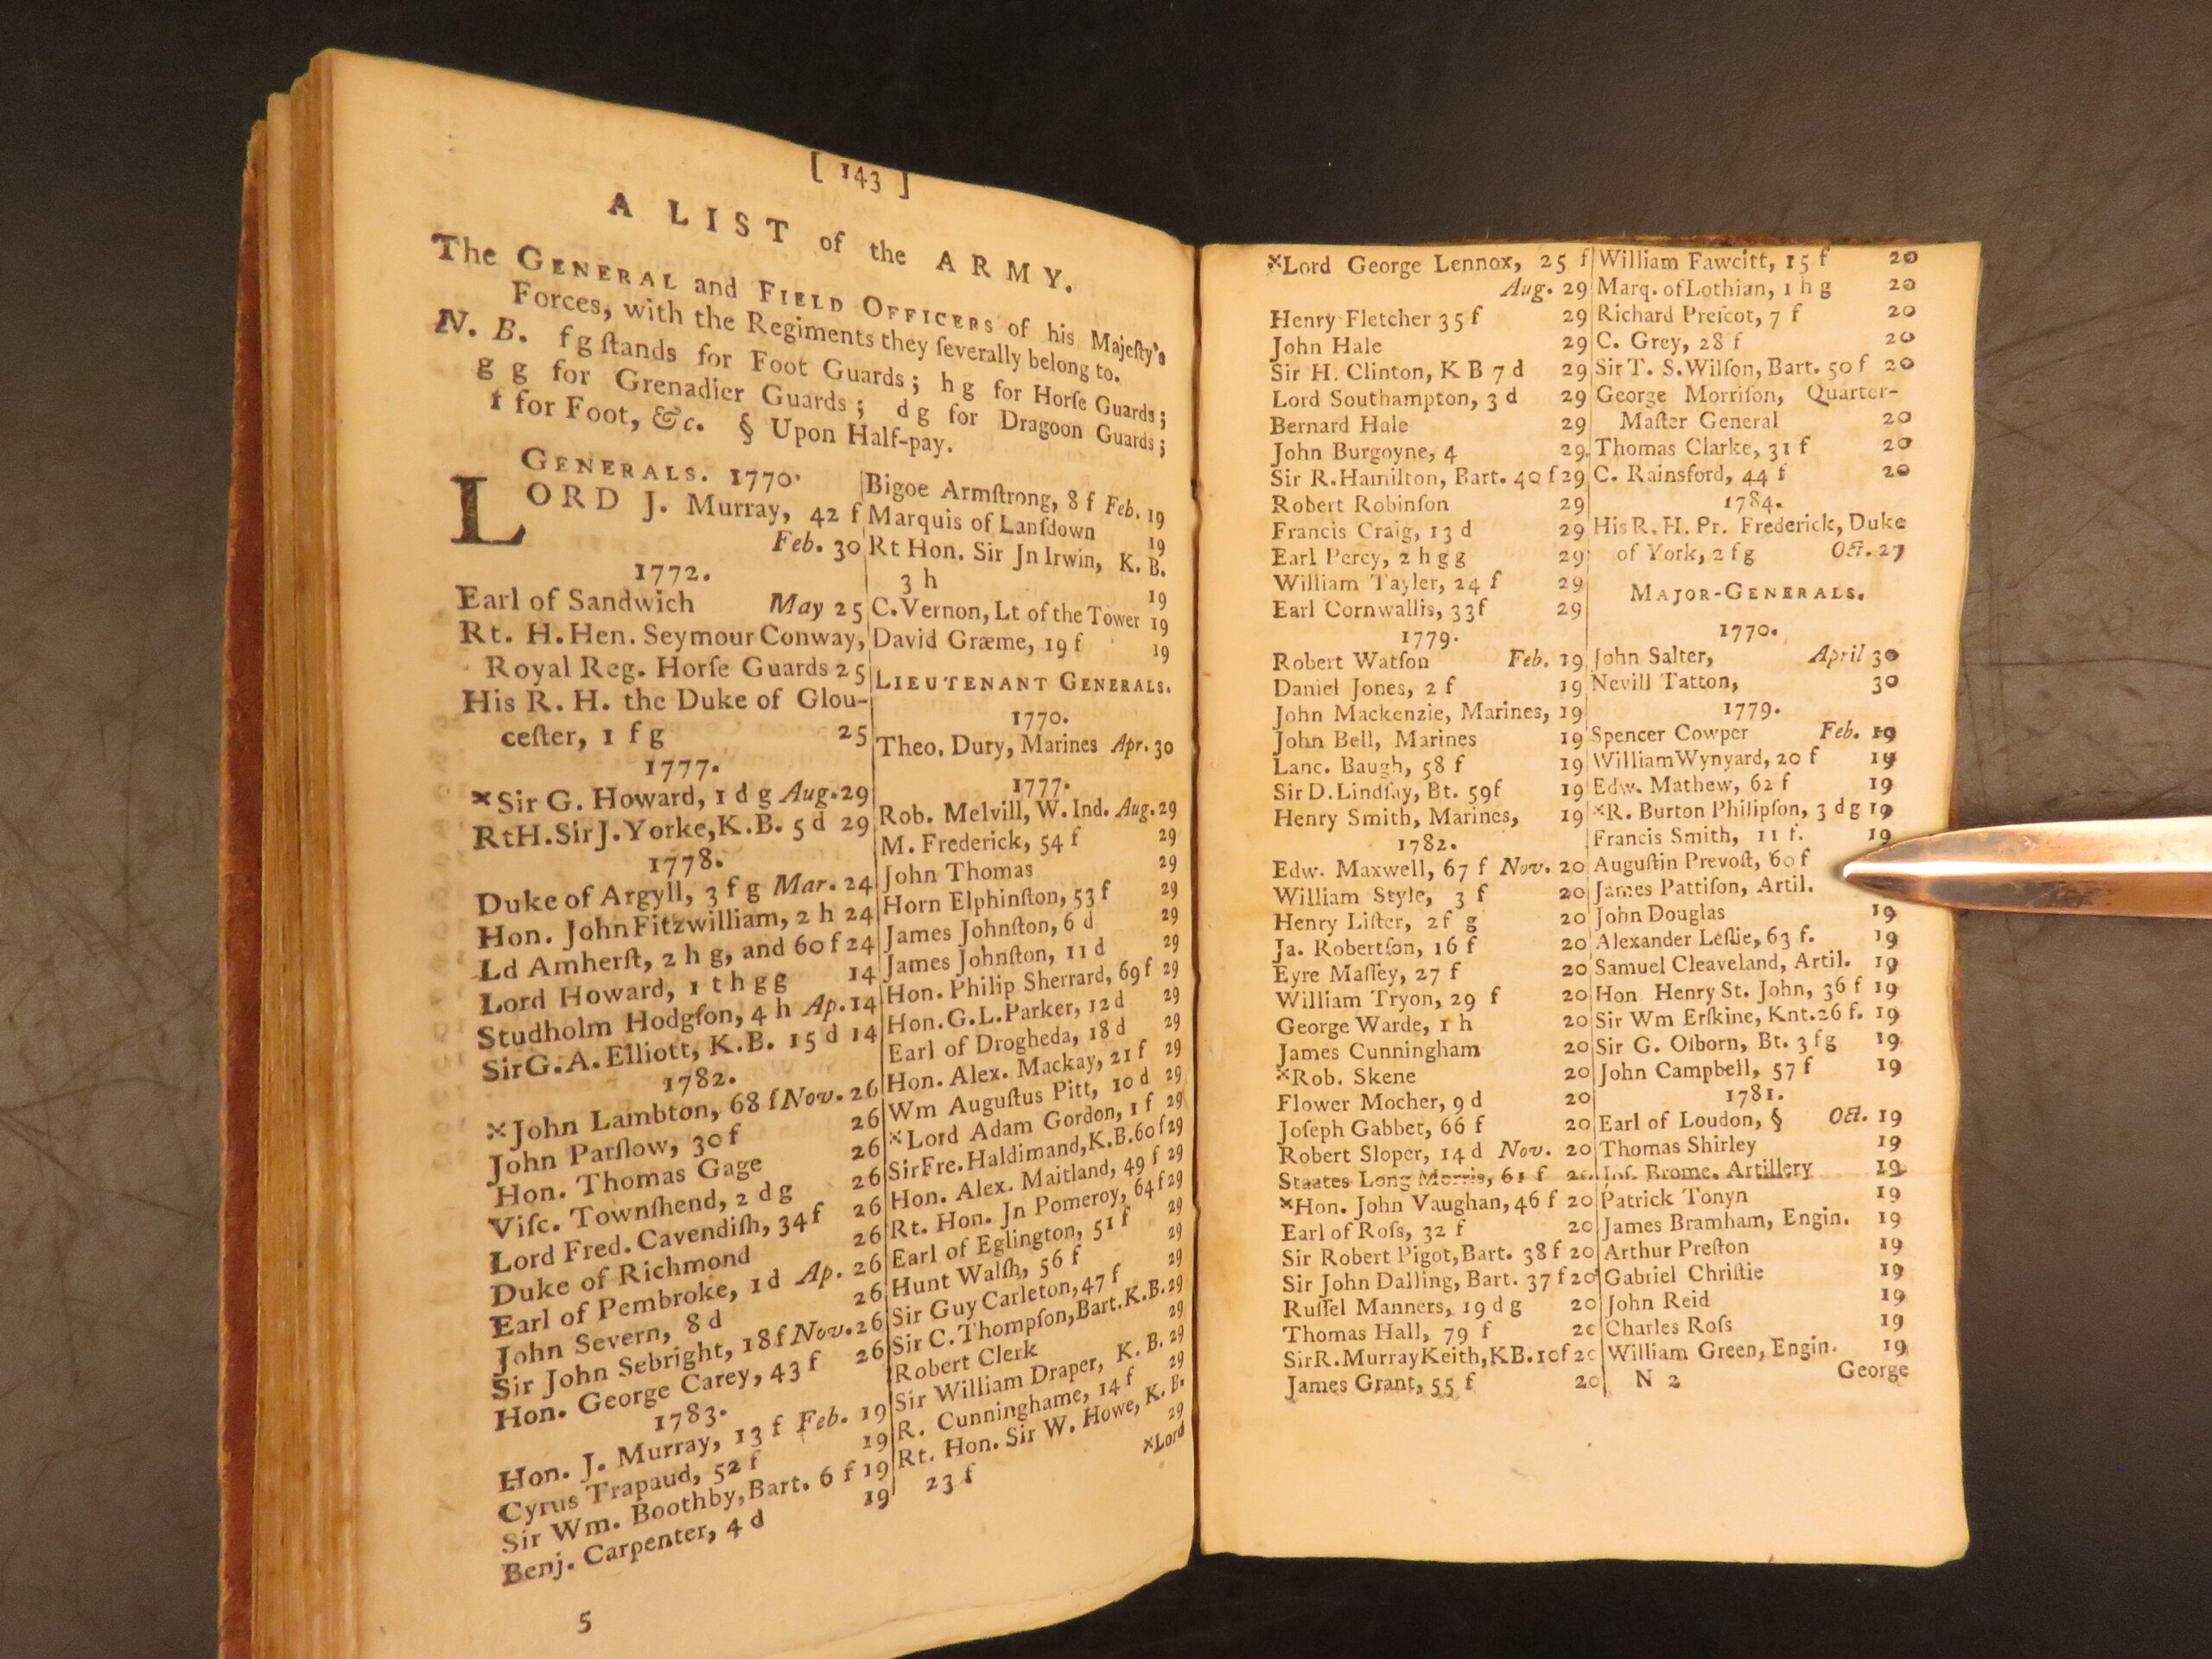 [ 143 ]
A LIST of the ARMY.
The GENERAL and FIELD OFFICERS of his Majeſty's
Forces, with the Regiments they ſeverally belong to.
N. B. f g ſtands for Foot Guards; h g for Horſe Guards;
g g for Grenadier Guards; d g for Dragoon Guards;
f for Foot, &c. § Upon Half-pay.
GENERALS. 1770.
LORD J. Murray, 42 f
Feb. 30
1772.
Earl of Sandwich May 25
Rt. H. Hen. Seymour Conway,
Royal Reg. Horſe Guards 25
His R. H. the Duke of Glou-
ceſter, 1 f g 25
1777.
*Sir G. Howard, 1 d g Aug. 29
Rt H. Sir J. Yorke, K.B. 5 d 29
1778.
Duke of Argyll, 3 f g Mar. 24
Hon. John Fitzwilliam, 2 h 24
Ld Amherſt, 2 h g, and 60 f 24
Lord Howard, 1 t h g g 14
Studholm Hodgſon, 4 h Ap. 14
Sir G. A. Elliott, K.B. 15 d 14
1782.
*John Lambton, 68 f Nov. 26
John Parſlow, 30 f 26
Hon. Thomas Gage 26
Viſc. Townſhend, 2 d g 26
Lord Fred. Cavendiſh, 34 f 26
Duke of Richmond 26
Earl of Pembroke, 1 d Ap. 26
John Severn, 8 d 26
Sir John Sebright, 18 f Nov. 26
Hon. George Carey, 43 f 26
1783.
Hon. J. Murray, 13 f Feb. 19
Cyrus Trapaud, 52 f 19
Sir Wm. Boothby, Bart. 6 f 19
Benj. Carpenter, 4 d 19
5
Bigoe Armſtrong, 8 f Feb. 19
Marquis of Lanſdown 19
Rt Hon. Sir Jn Irwin, K. B.
3 h 19
C. Vernon, Lt of the Tower 19
David Græme, 19 f 19
LIEUTENANT GENERALS.
1770.
Theo. Dury, Marines Apr. 30
1777.
Rob. Melvill, W. Ind. Aug. 29
M. Frederick, 54 f 29
John Thomas 29
Horn Elphinſton, 53 f 29
James Johnſton, 6 d 29
James Johnſton, 11 d 29
Hon. Philip Sherrard, 69 f 29
Hon. G. L. Parker, 12 d 29
Earl of Drogheda, 18 d 29
Hon. Alex. Mackay, 21 f 29
Wm Auguſtus Pitt, 10 d 29
*Lord Adam Gordon, 1 f 29
Sir Fre. Haldimand, K.B. 60 f 29
Hon. Alex. Maitland, 49 f 29
Rt. Hon. Jn Pomeroy, 64 f 29
Earl of Eglington, 51 f 29
Hunt Walſh, 56 f 29
Sir Guy Carleton, 47 f 29
Sir C. Thompſon, Bart. K.B. 29
Robert Clerk 29
Sir William Draper, K. B. 29
R. Cunninghame, 14 f 29
Rt. Hon. Sir W. Howe, K. B.
23 f 29
*Lord
*Lord George Lennox, 25 f
Aug. 29
Henry Fletcher 35 f 29
John Hale 29
Sir H. Clinton, K B 7 d 29
Lord Southampton, 3 d 29
Bernard Hale 29
John Burgoyne, 4 29
Sir R. Hamilton, Bart. 40 f 29
Robert Robinſon 29
Francis Craig, 13 d 29
Earl Percy, 2 h g g 29
William Tayler, 24 f 29
Earl Cornwallis, 33 f 29
1779.
Robert Watſon Feb. 19
Daniel Jones, 2 f 19
John Mackenzie, Marines, 19
John Bell, Marines 19
Lanc. Baugh, 58 f 19
Sir D. Lindſay, Bt. 59 f 19
Henry Smith, Marines, 19
1782.
Edw. Maxwell, 67 f Nov. 20
William Style, 3 f 20
Henry Liſter, 2 f g 20
Ja. Robertſon, 16 f 20
Eyre Maſſey, 27 f 20
William Tryon, 29 f 20
George Warde, 1 h 20
James Cunningham 20
*Rob. Skene 20
Flower Mocher, 9 d 20
Joſeph Gabbet, 66 f 20
Robert Sloper, 14 d Nov. 20
Staates Long Morris, 61 f 20
*Hon. John Vaughan, 46 f 20
Earl of Roſs, 32 f 20
Sir Robert Pigot, Bart. 38 f 20
Sir John Dalling, Bart. 37 f 20
Ruſſel Manners, 19 d g 20
Thomas Hall, 79 f 20
Sir R. Murray Keith, KB. 10 f 20
James Grant, 55 f 20
William Fawcitt, 15 f 20
Marq. of Lothian, 1 h g 20
Richard Preſcot, 7 f 20
C. Grey, 28 f 20
Sir T. S. Wilſon, Bart. 50 f 20
George Morriſon, Quarter-
Maſter General 20
Thomas Clarke, 31 f 20
C. Rainsford, 44 f 20
1784.
His R. H. Pr. Frederick, Duke
of York, 2 f g Oct. 27
MAJOR-GENERALS.
1770.
John Salter, April 30
Nevill Tatton, 30
1779.
Spencer Cowper Feb. 19
William Wynyard, 20 f 19
Edw. Mathew, 62 f 19
*R. Burton Philipſon, 3 d g 19
Francis Smith, 11 f. 19
Auguſtin Prevoſt, 60 f
James Pattiſon, Artil.
John Douglas 19
Alexander Leſlie, 63 f. 19
Samuel Cleaveland, Artil. 19
Hon Henry St. John, 36 f 19
Sir Wm Erſkine, Knt. 26 f. 19
Sir G. Oſborn, Bt. 3 f g 19
John Campbell, 57 f 19
1781.
Earl of Loudon, § Oct. 19
Thomas Shirley 19
Joſ. Brome, Artillery 19
Patrick Tonyn 19
James Bramham, Engin. 19
Arthur Preſton 19
Gabriel Chriſtie 19
John Reid 19
Charles Roſs 19
William Green, Engin. 19
N 2 George